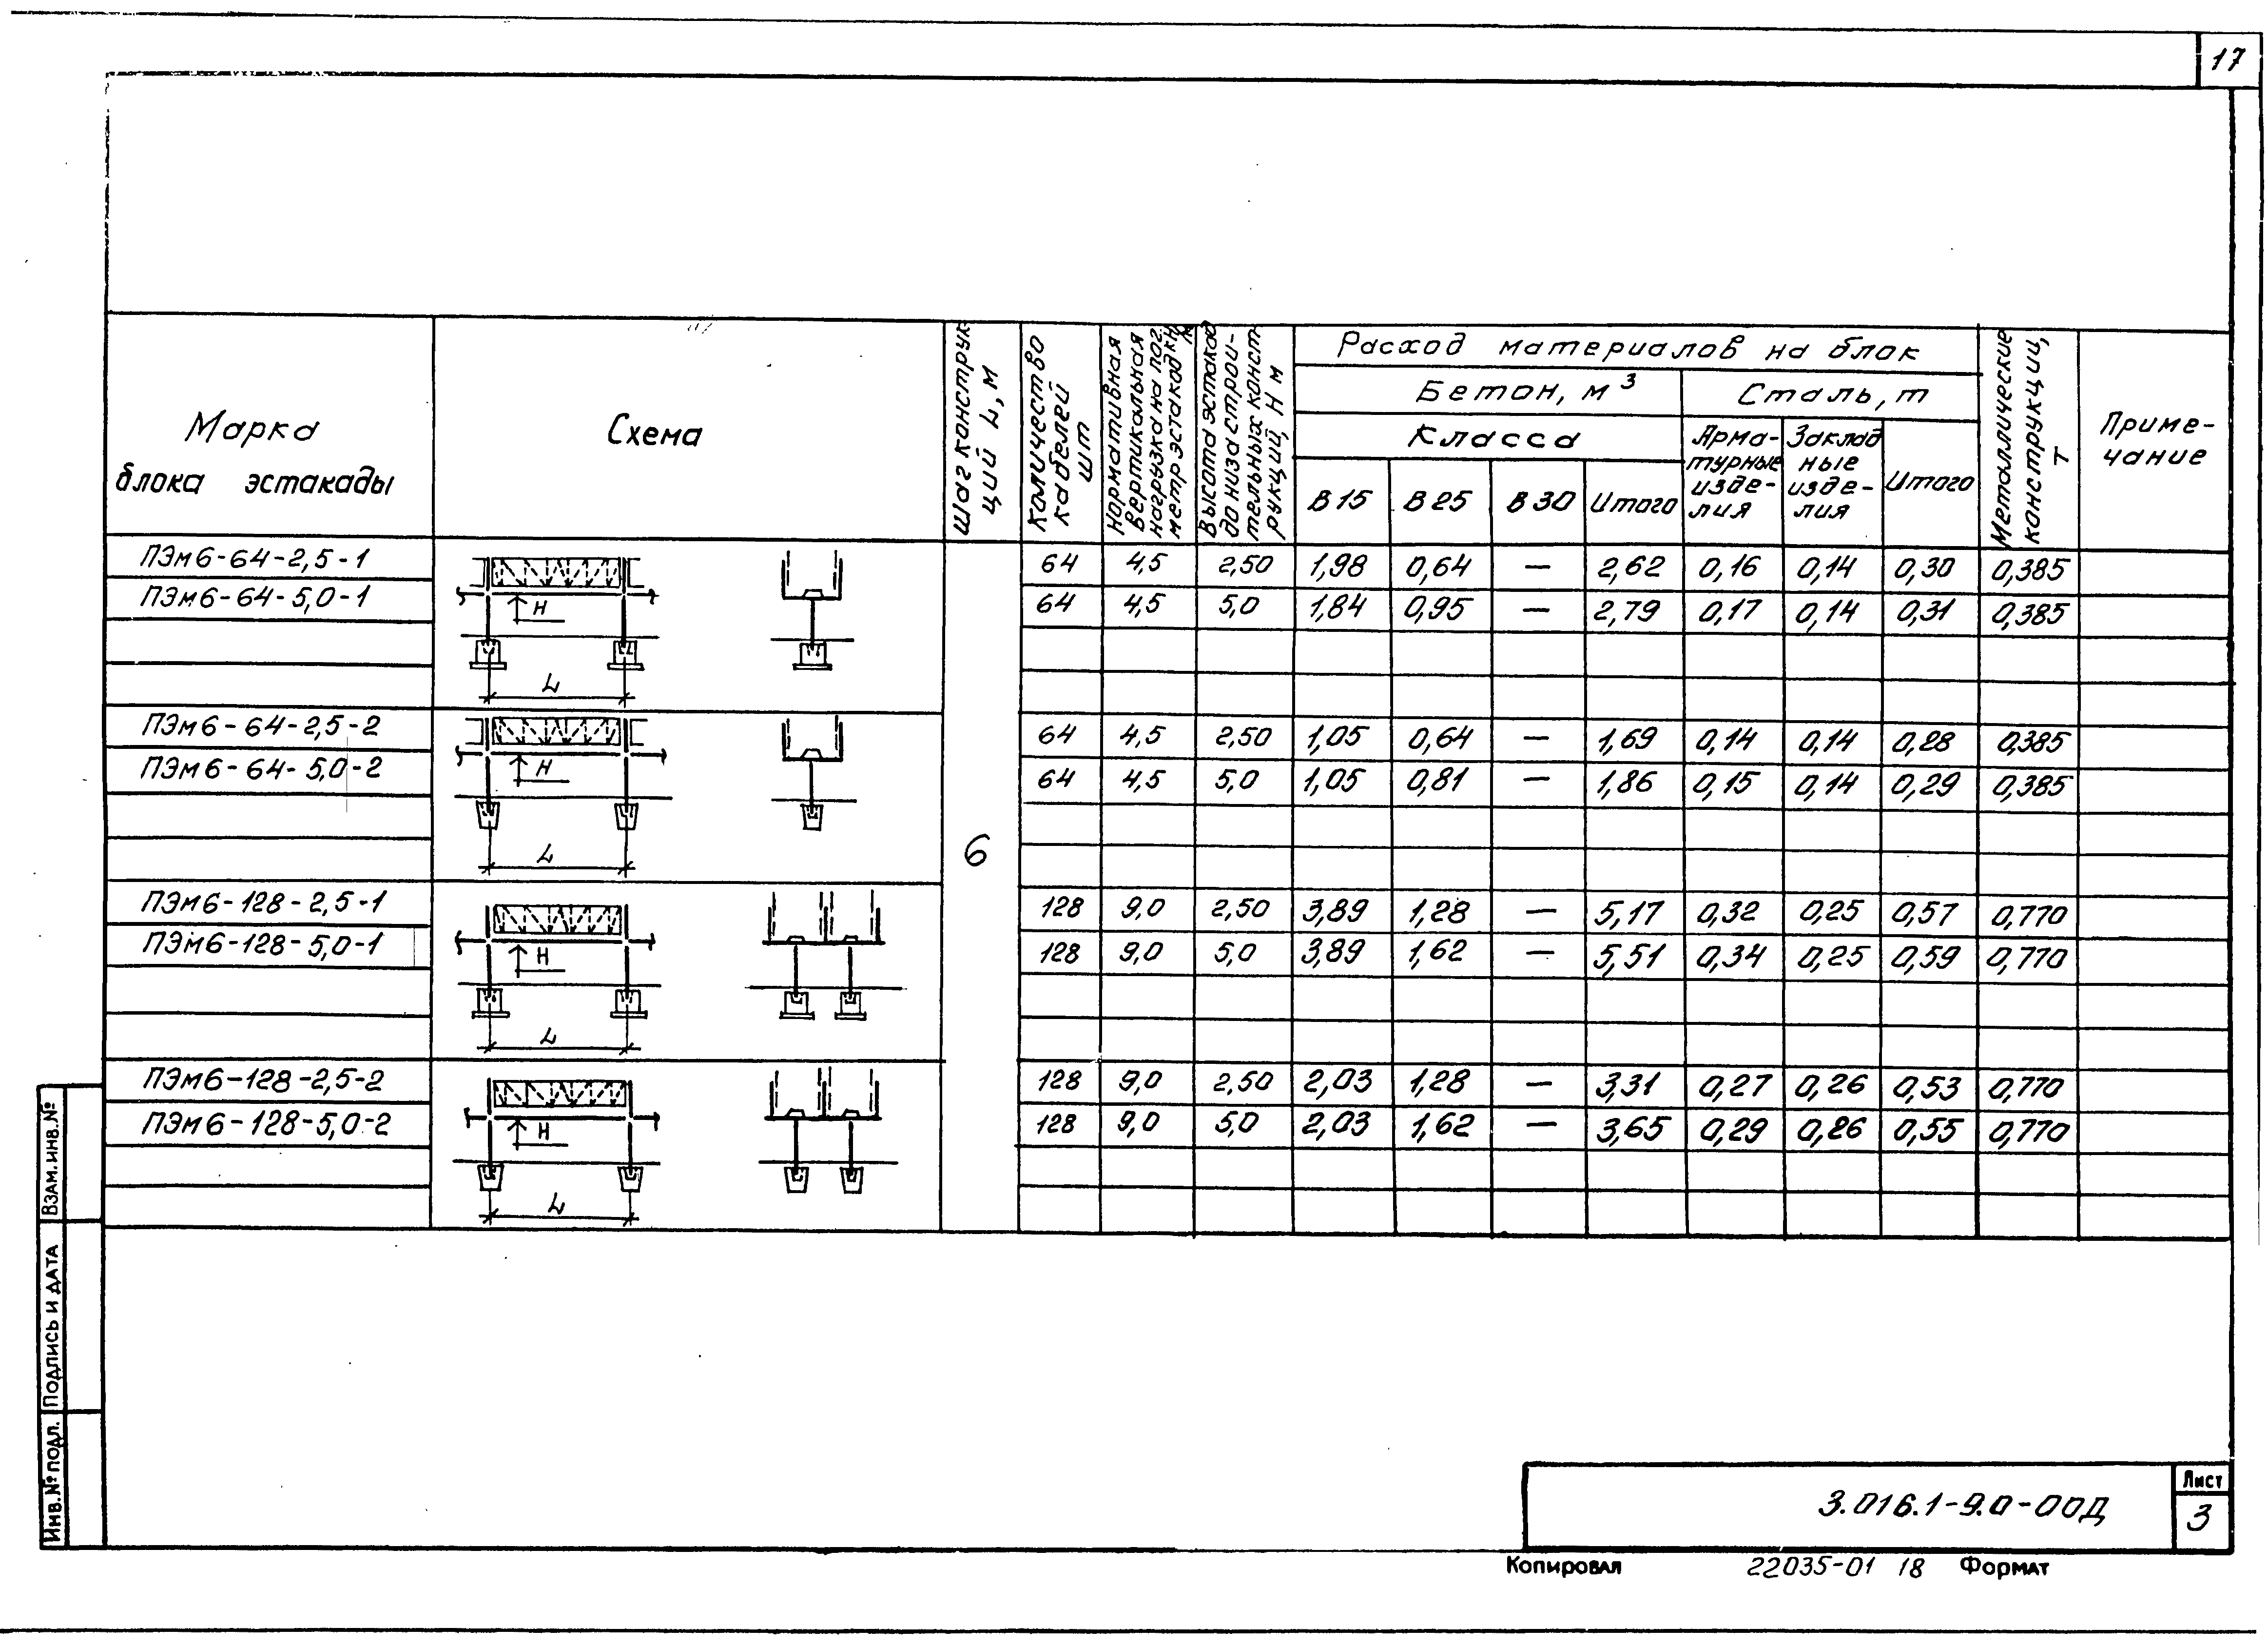 17
Марка
блока эстакады
Схема
Шаг конструк-
ций L, м
Количество
кабелей
шт
Нормативная
вертикальная
нагрузка на пог.
метр эстакад кН/м
Высота эстакад
до низа строи-
тельных конст-
рукций, Н м
Расход материалов на блок
Бетон, м³
Класса
В15 В25 В30 Итого
Сталь, т
Арма-
турные
изде-
лия
Заклад
ные
изде-
лия
Итого
Металлические
конструкции,
т
Приме-
чание
ПЭм6-64-2,5-1 64 4,5 2,50 1,98 0,64 — 2,62 0,16 0,14 0,30 0,385
ПЭм6-64-5,0-1 64 4,5 5,0 1,84 0,95 — 2,79 0,17 0,14 0,31 0,385
H
L
ПЭм6-64-2,5-2 64 4,5 2,50 1,05 0,64 — 1,69 0,14 0,14 0,28 0,385
ПЭм6-64-5,0-2 64 4,5 5,0 1,05 0,81 — 1,86 0,15 0,14 0,29 0,385
H
L
6
ПЭм6-128-2,5-1 128 9,0 2,50 3,89 1,28 — 5,17 0,32 0,25 0,57 0,770
ПЭм6-128-5,0-1 128 9,0 5,0 3,89 1,62 — 5,51 0,34 0,25 0,59 0,770
H
L
ПЭм6-128-2,5-2 128 9,0 2,50 2,03 1,28 — 3,31 0,27 0,26 0,53 0,770
ПЭм6-128-5,0-2 128 9,0 5,0 2,03 1,62 — 3,65 0,29 0,26 0,55 0,770
H
L
Взам. инв. №
Подпись и дата
Инв. № подл.
3.016.1-9.0-00Д
Лист
3
Копировал 22035-01 18 Формат